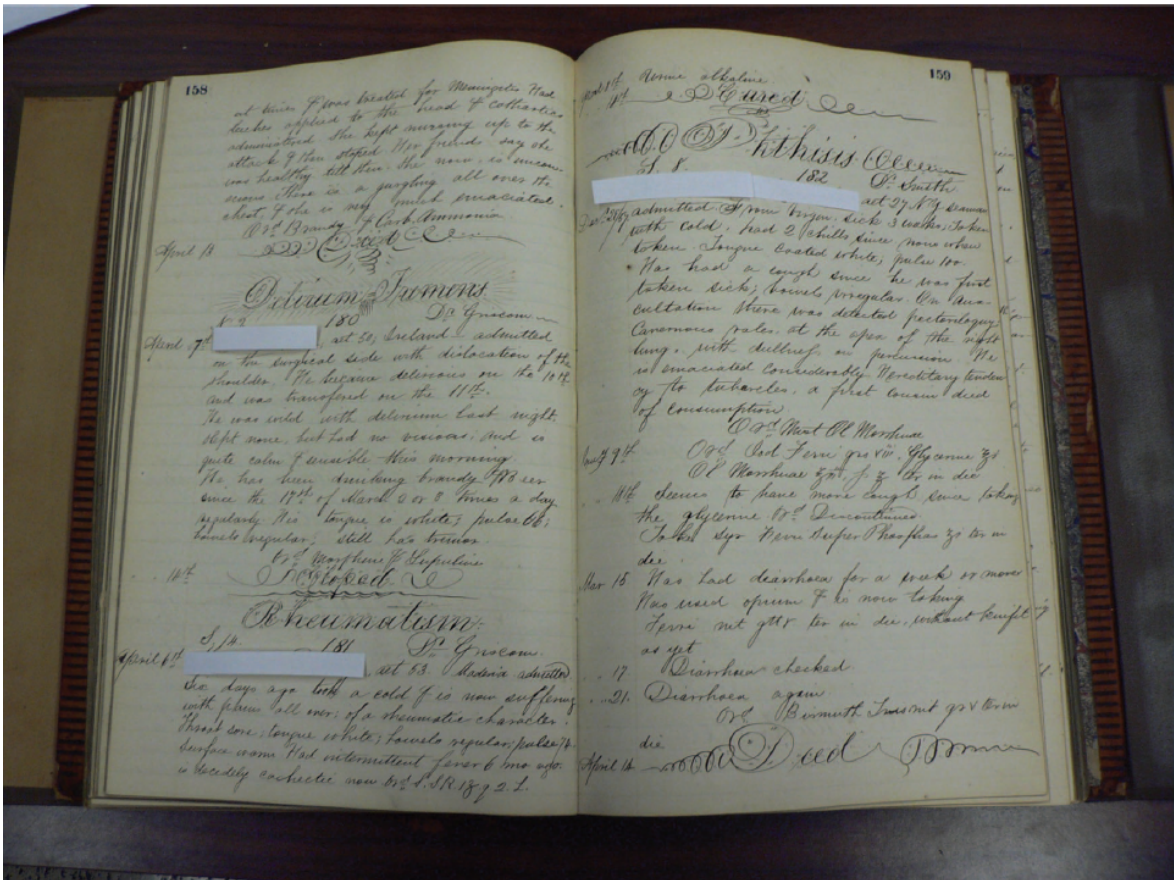 158
at time & was treated for Meningitis Had
leches applied to the head & cathartics
administered She kept nursing up to the
attack & then stoped. Her friends say she
was healthy till then. She now is uncon-
cious. There is a gurgling all over the
chest, & she is very much emaciated.
Ord Brandy & Carb Ammonia
April 13 Died
Delirum Tremens
N. 3 180 Dr Griscom
April 7th aet 50, Ireland admitted
on the surgical side with dislocation of the
shoulder. He became delirious on the 10th
and was transfered on the 11th.
He was wild with delirium last night,
slept none, but had no visions; and is
quite calm & sensible this morning
He has been drinking brandy & Beer
since the 17th of March 6 or 8 times a day
regularly His tongue is white; pulse 66;
bowels regular; still has tremor
Ord Morpheus & Lupuline
" 14th Eloped
Rheumatism.
S, 14. 181 Dr Griscom.
April 6th aet 53. Madeira admitted
Six days ago took a cold & is now suffering
with pains all over; of a rheumatic character.
Throat sore; tongue white; bowels regular; pulse 72
Surface warm Had intermittent fever 6 mo ago.
is decidely cachectic now Ord S.S.R.
159
April 1st Urine alkaline
Cured
Phthisis
S. 8. 182 Dr Smith
aet 27 N.Y. seaman
admitted From sick 3 weeks; Taken
with cold, had 2 chills since none when
taken. Tongue coated white; pulse 100.
Has had a cough since he was first
taken sick; bowels irregular. On Aus-
cultation there was detected pectoroloquy;
Cavernous rales at the apex of the right
lung, with dullness on percussion. He
is emaciated considerably Hereditary tenden-
cy to tubercles, a first cousin died
of consumption
Ord Mist Ol Morrhuae
9th Ord Iod Ferri grs Glycerine
Ol Morrhuae ter in die
" 11th Seems to have more cough since taking
the glycerine Ord Discontinued.
Take Syr Ferri Super Phosphas ter in
die
Mar 15 Has had diarrhoea for a week or more
Has used opium & is now taking
Ferri nit gtt ter in die, without benefit
as yet
" 17 Diarrhoea checked
" 21. Diarrhoea again
Ord Bismuth Trisnit grs v ter in
die
April 14 Died